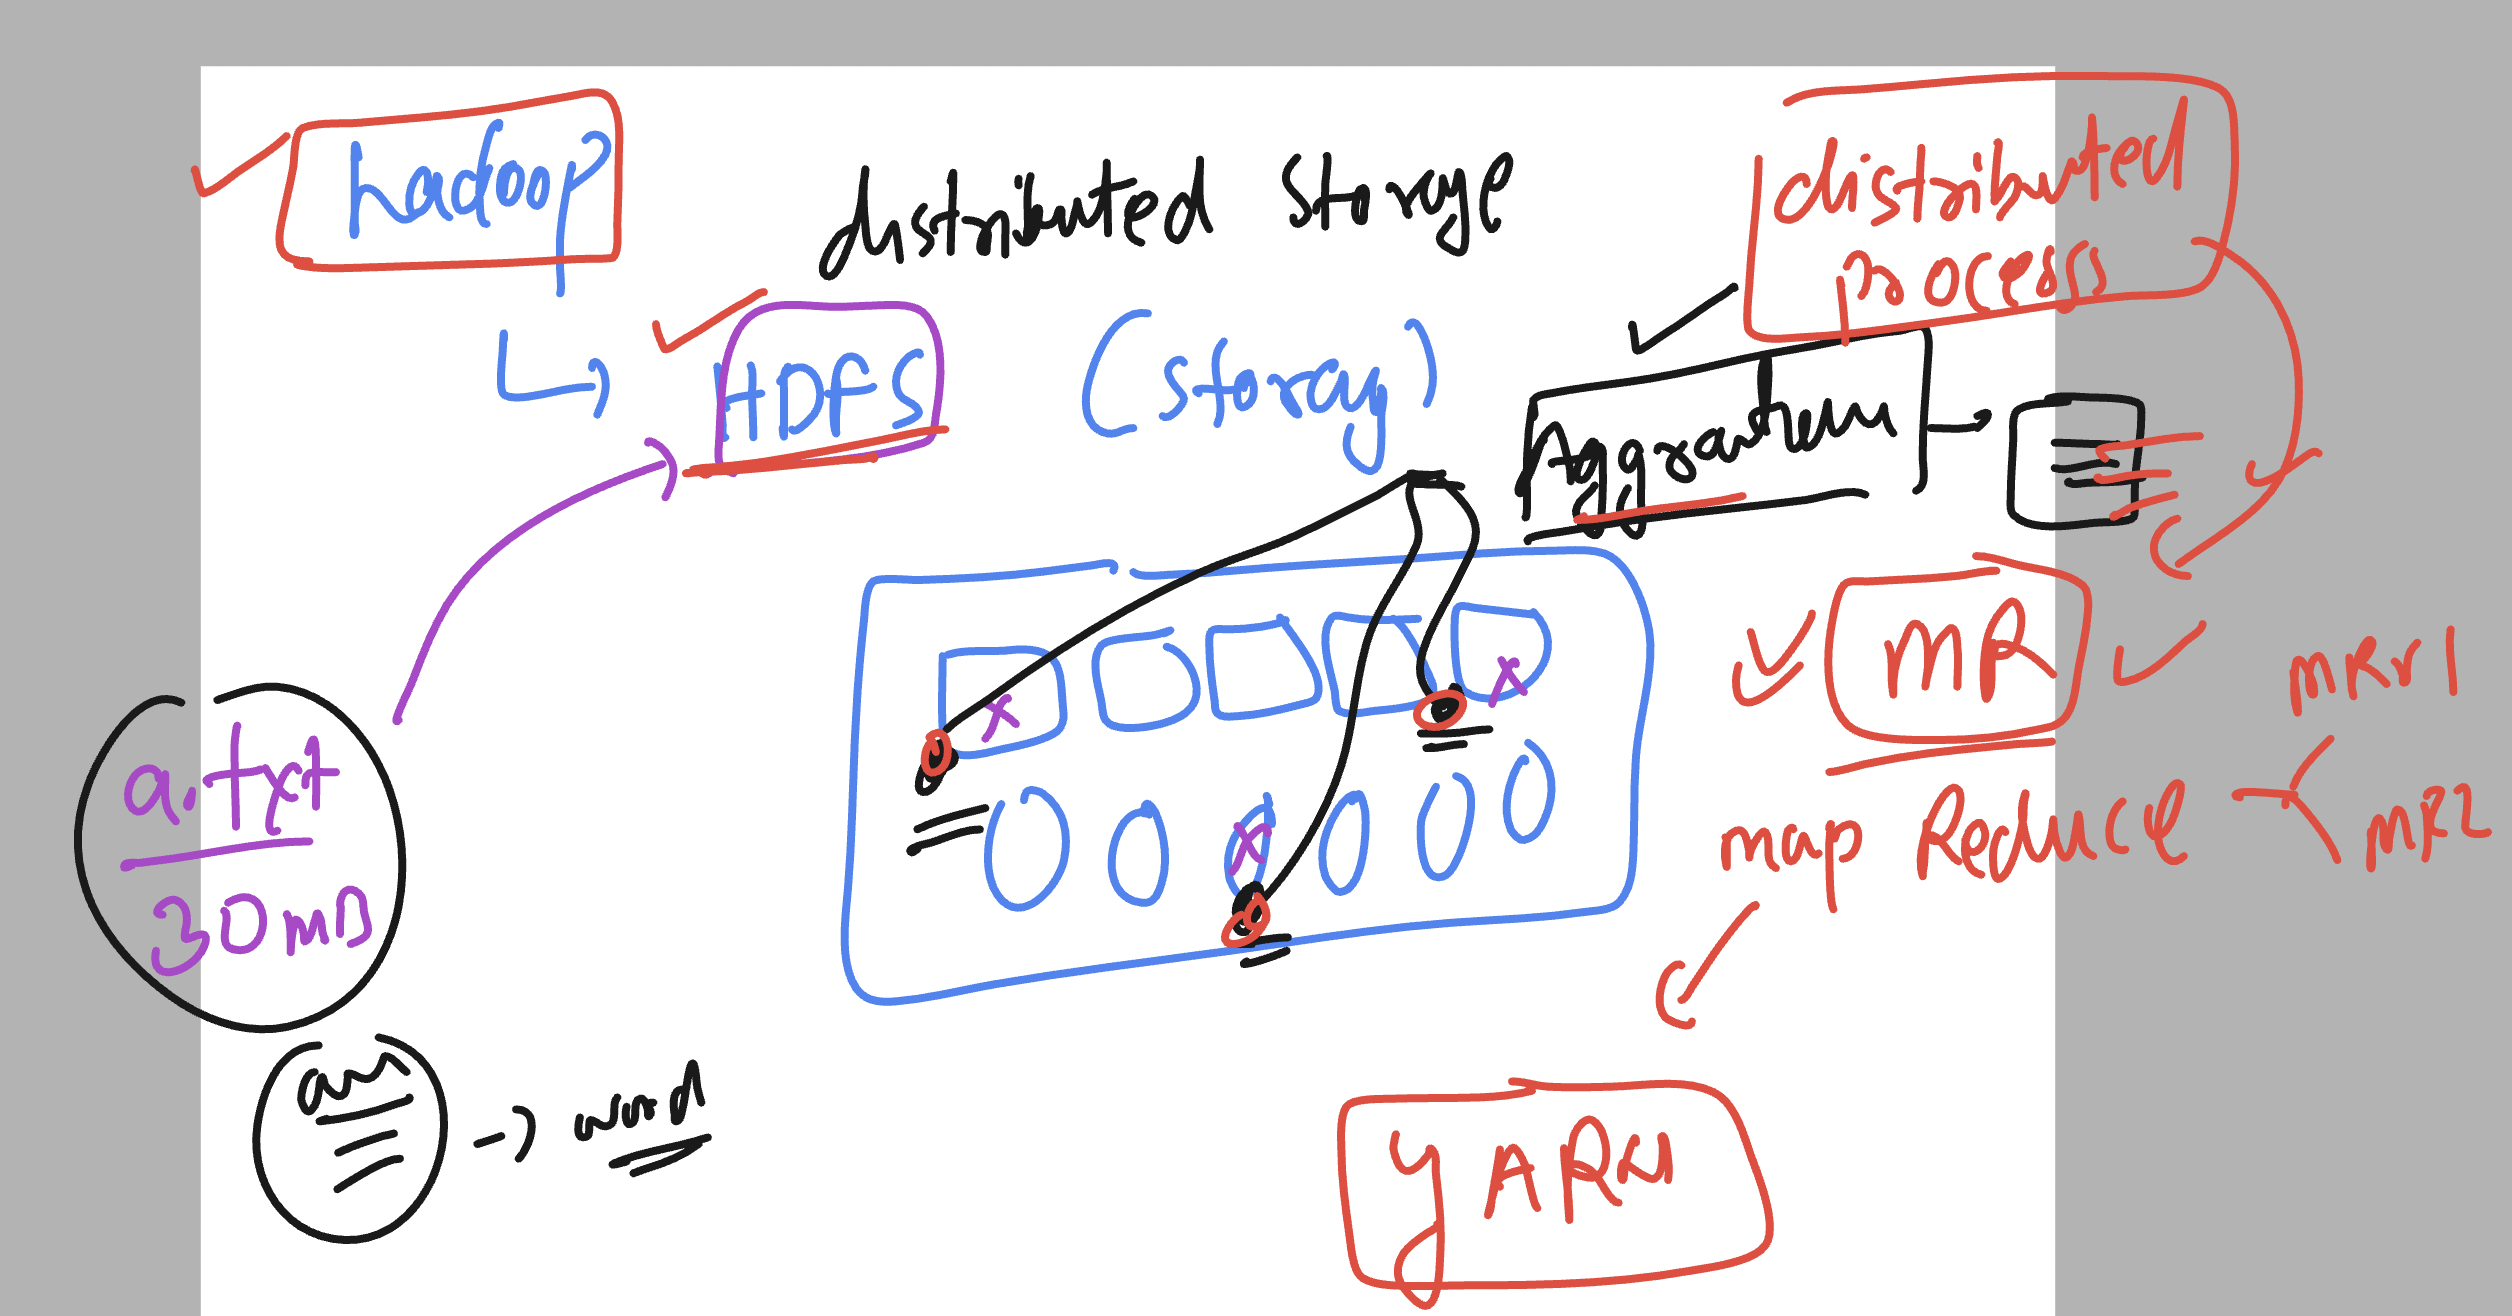 hadoop
distributed storage
distributed
process
HDFS
(storage)
Aggregation
MR
MRv1
a.txt
30mb
map Reduce
MR2
word
YARN